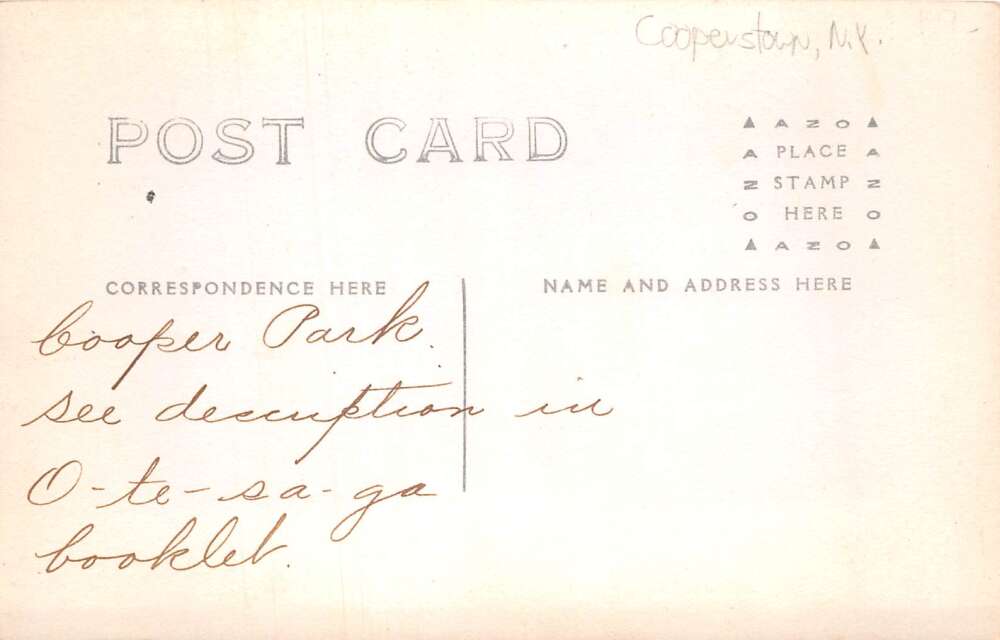 Cooperstown, N.Y.
POST CARD
▲ A Z O ▲
A PLACE A
Z STAMP Z
O HERE O
▲ A Z O ▲
CORRESPONDENCE HERE
NAME AND ADDRESS HERE
Cooper Park.
see description in
O-te-sa-ga
booklet.